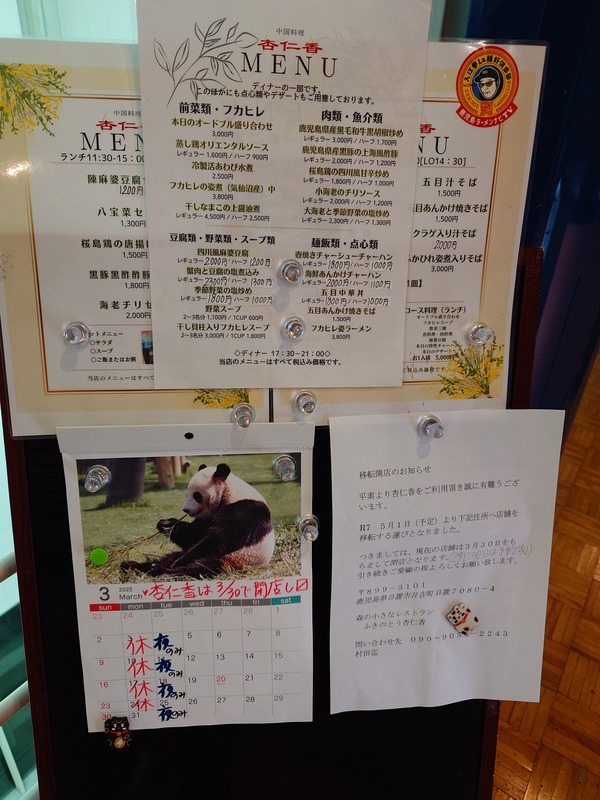 中国料理
杏仁香
MENU
ディナーの一部です。
このほかにも点心類やデザートもご用意しております。
前菜類・フカヒレ
本日のオードブル盛り合わせ
3,000円
蒸し鶏オリエンタルソース
レギュラー 1,600円 / ハーフ 900円
冷製活あわび水煮
2,500円
フカヒレの姿煮（気仙沼産）中
3,800円
干しなまこの上醤油煮
レギュラー 4,500円 / ハーフ 2,500円
肉類・魚介類
鹿児島県産黒毛和牛黒胡椒炒め
レギュラー 3,000円 / ハーフ 1,700円
鹿児島県産黒豚の上海風酢豚
レギュラー 2,000円 / ハーフ 1,200円
桜島鶏の四川風甘辛炒め
レギュラー 1,800円 / ハーフ 1,000円
小海老のチリソース
レギュラー 2,000円 / ハーフ 1,200円
大海老と季節野菜の塩炒め
レギュラー 2,300円 / ハーフ 1,300円
豆腐類・野菜類・スープ類
四川風麻婆豆腐
レギュラー 2000円 / ハーフ 1200円
蟹肉と豆腐の塩煮込み
レギュラー 2300円 / ハーフ 1300円
季節野菜の塩炒め
レギュラー 1800円 / ハーフ 1000円
野菜スープ
2～3名分 1,100円 / 1CUP 600円
干し貝柱入りフカヒレスープ
2～3名分 3,000円 / 1CUP 1,800円
麺飯類・点心類
壺焼きチャーシューチャーハン
レギュラー 1800円 / ハーフ 1000円
海鮮あんかけチャーハン
レギュラー 2000円 / ハーフ 1100円
五目中華丼
レギュラー 1800円 / ハーフ 1000円
五目あんかけ焼きそば
1,500円
フカヒレ姿ラーメン
3,800円
◇ディナー 17：30～21：00◇
当店のメニューはすべて税込み価格です。
中国料
杏仁
MEN
ランチ11:30-15：00
陳麻婆豆腐
1,200円
八宝菜セ
1,300円
桜島鶏の唐揚
1,500円
黒豚黒酢酢豚
1,800円
海老チリセ
2,000円
セットメニュー
○サラダ
○スープ
○ご飯またはお粥
当店のメニューはすべて
鹿児島ラーメンナビTV
香
NU
[LO14：30]
五目汁そば
1,500円
五目あんかけ焼きそば
1,500円
クラゲ入り汁そば
2000円
ふかひれ姿煮入りそば
3,000円
皿】
コース料理（ランチ）
オードブル盛り合わせ
フカヒレスープ
麻婆豆腐
お1人様 5,000円
3
2025
March
♥杏仁香は3/30で閉店し〼
sun mon tue wed thu fri sat
23 24 25 26 27 28 1
2 3 4 5 6 7 8
休 夜のみ
9 10 11 12 13 14 15
休 夜のみ
16 17 18 19 20 21 22
休 夜のみ
23 24 25 26 27 28 29
休 夜のみ
30 31
移転開店のお知らせ
平素より杏仁香をご利用頂き誠に有難うござ
います。
R7 5月1日（予定）より下記住所へ店舗を
移転する運びとなりました。
つきましては、現在の店舗は3月30日をも
ちまして閉店となります。
引き続きご愛顧の程よろしくお願い致します。
〒899-3101
鹿児島県日置市日吉町日置7080-4
森の小さなレストラン
ふきのとう杏仁香
問い合わせ先 090-905 -2243
村田迄